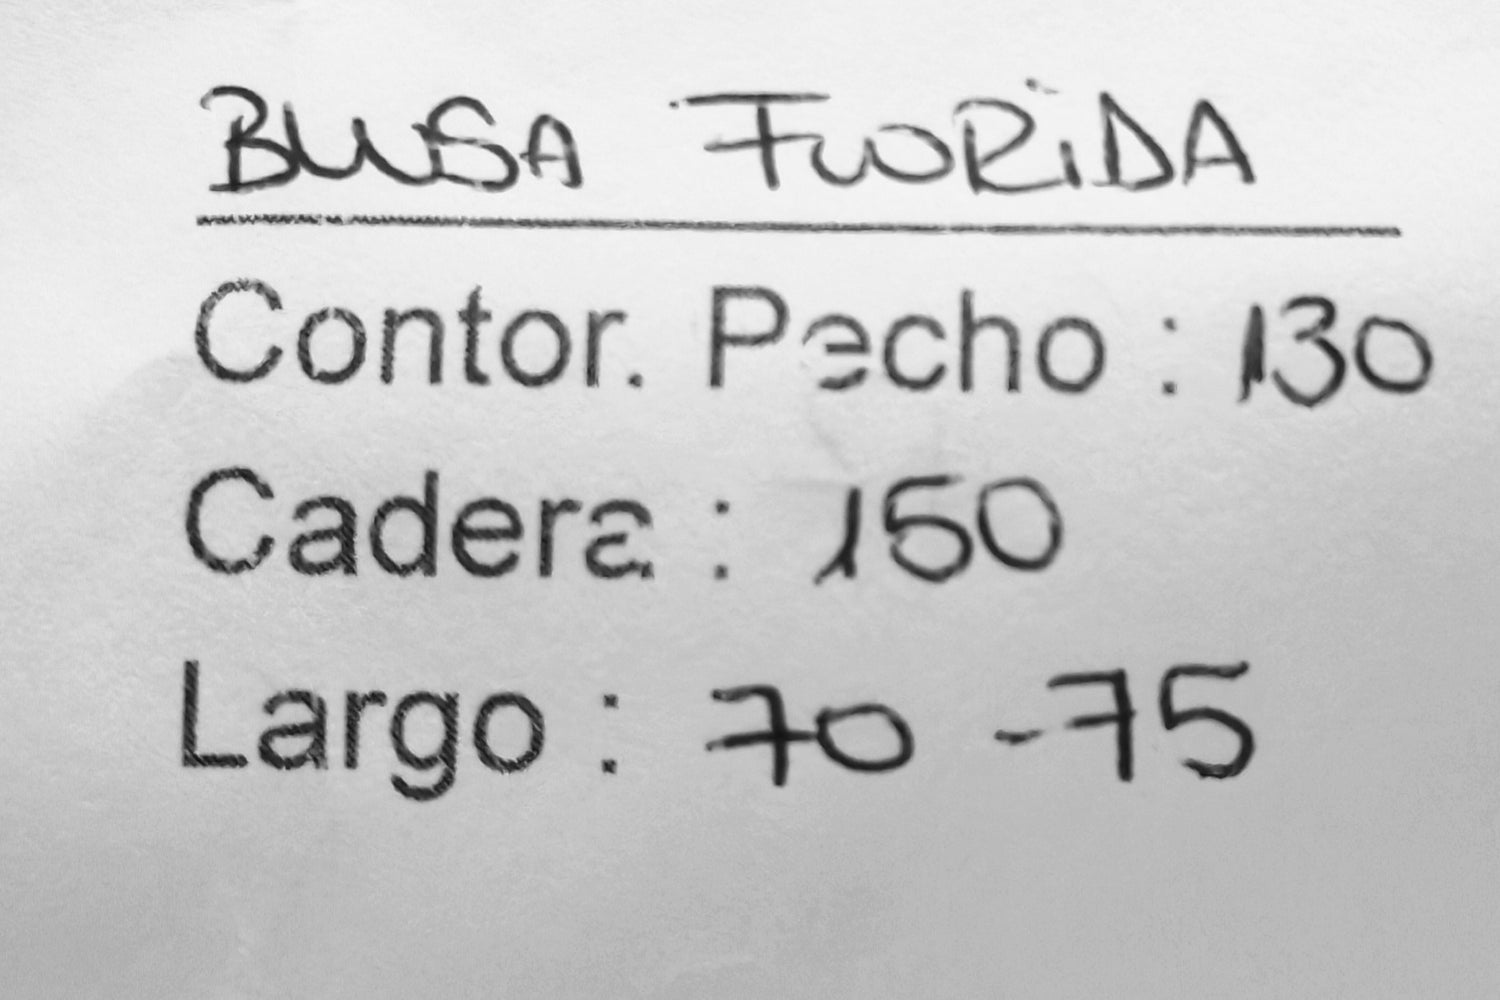 BLUSA FLORiDA
Contor. Pecho : 130
Cadera : 150
Largo : 70 -75